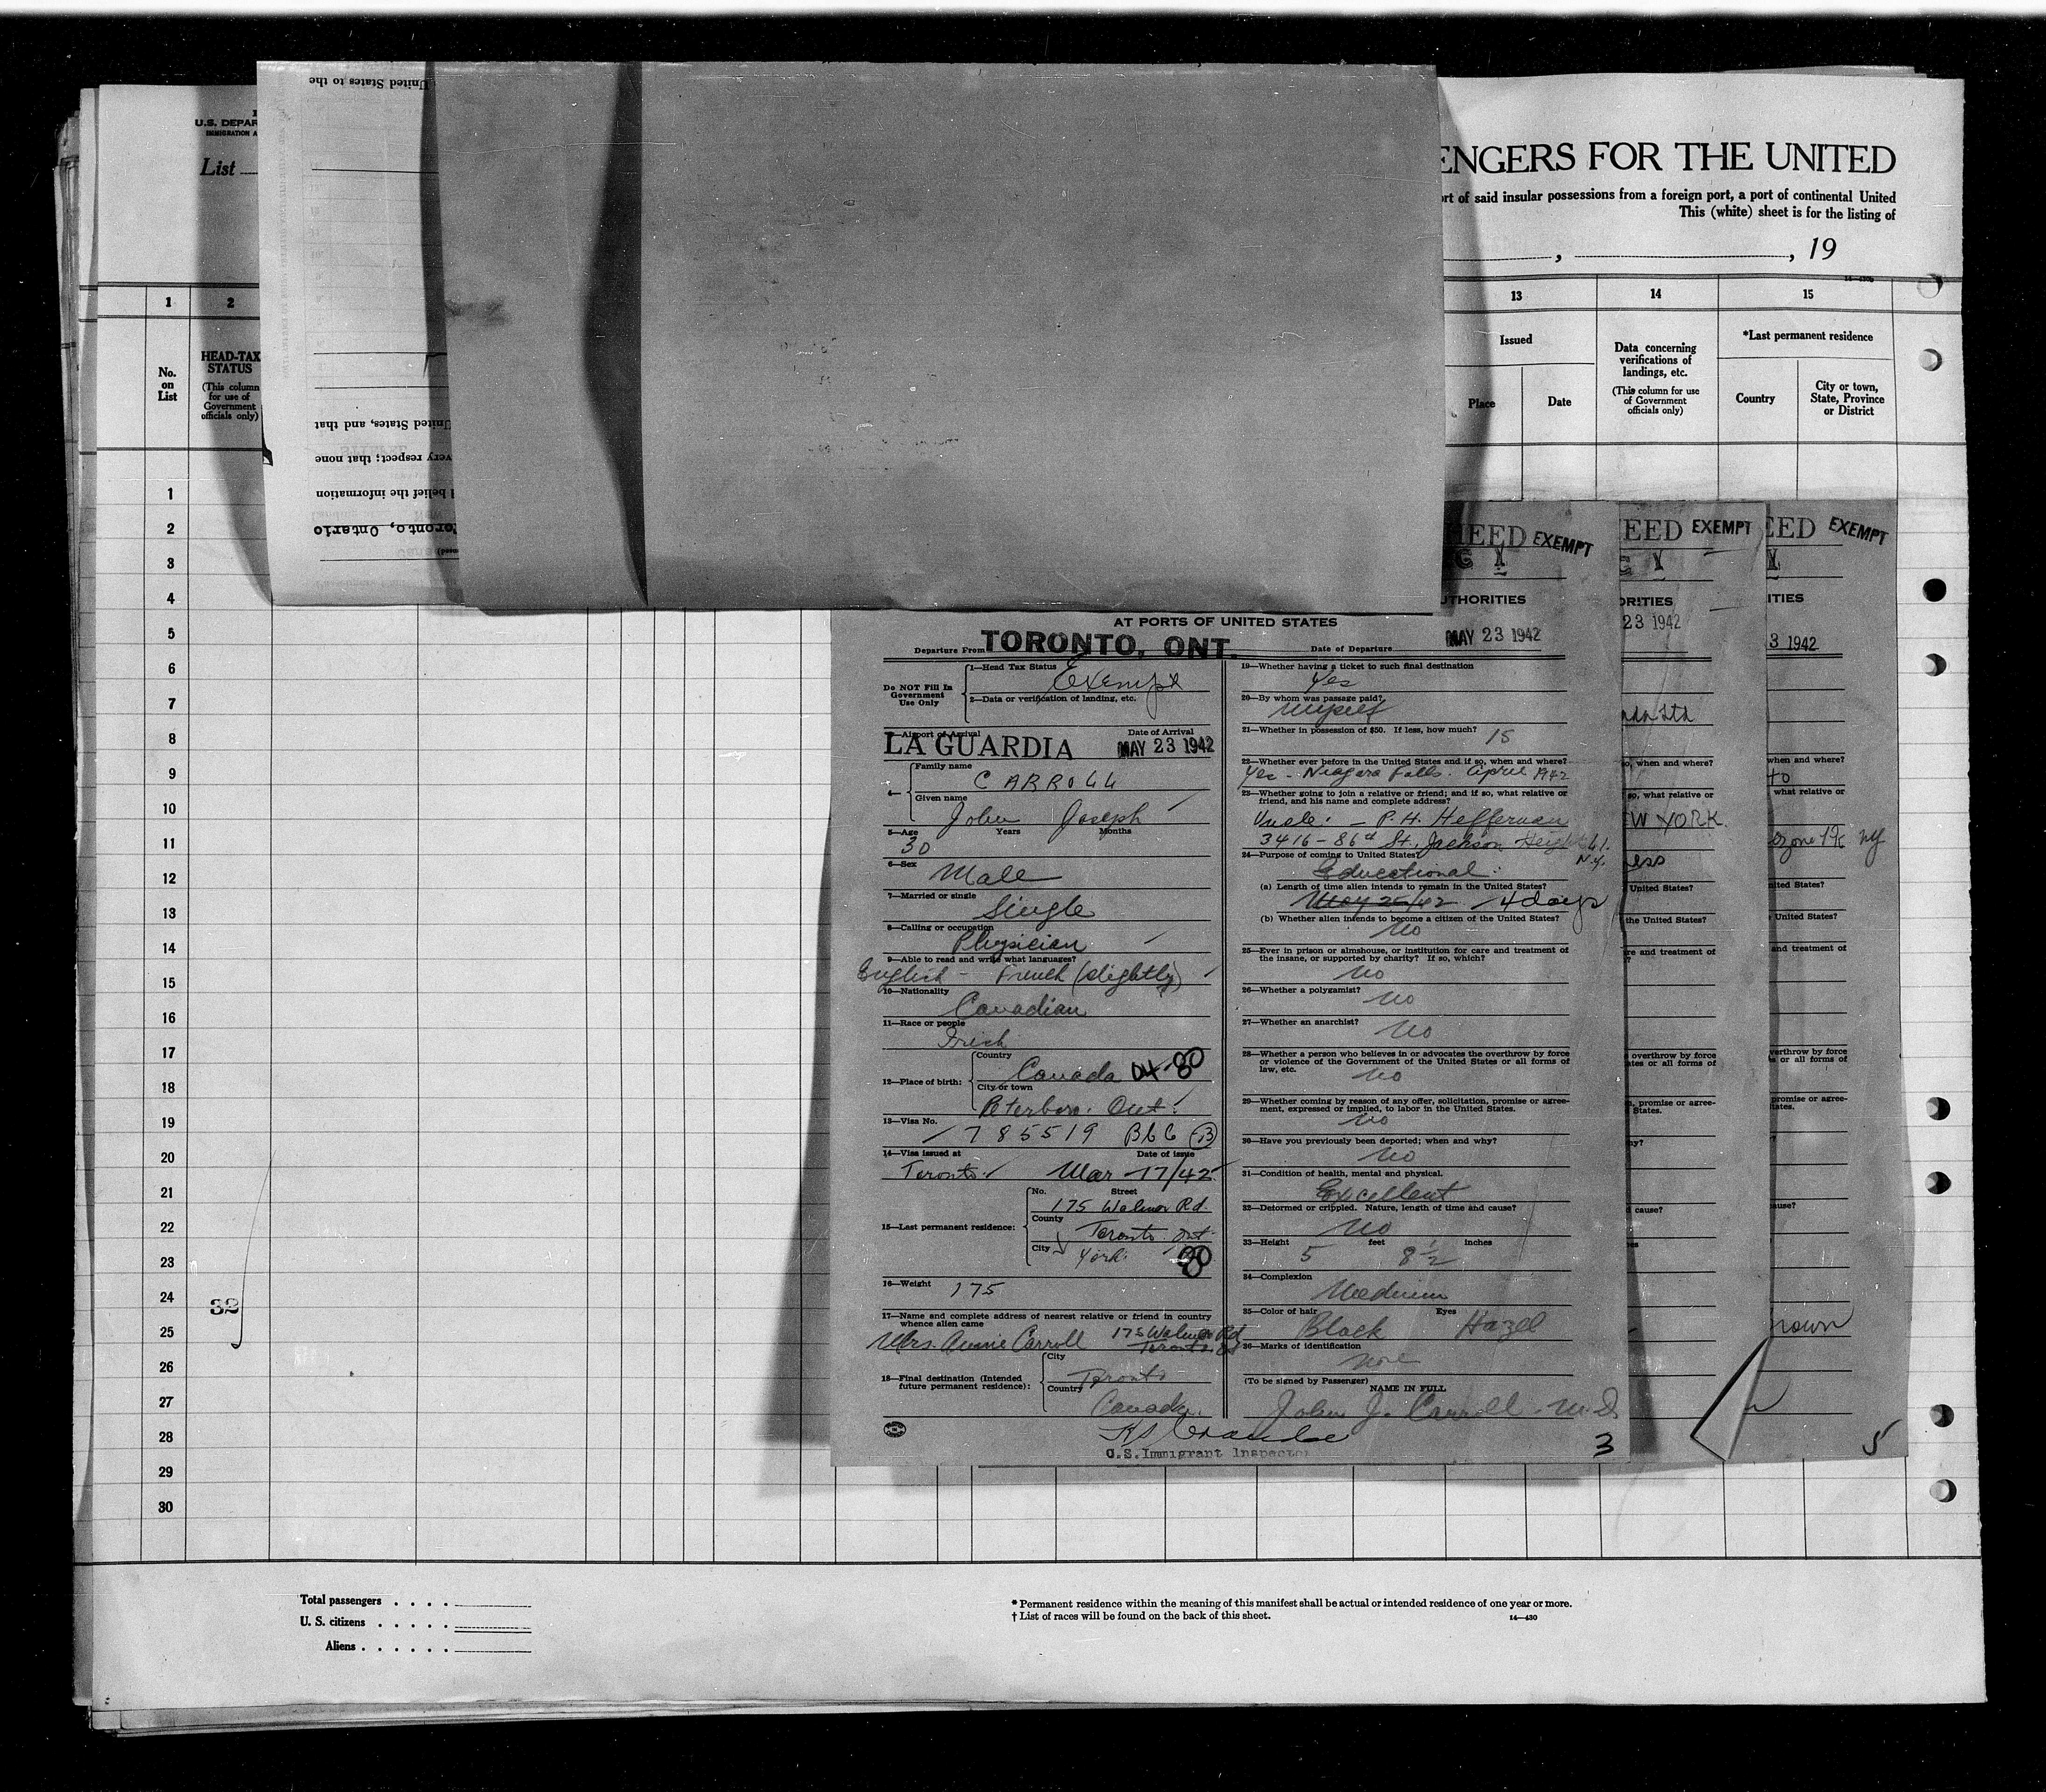 United States to the
U.S. DEPAR
IMMIGRATION A
List
ENGERS FOR THE UNITED
ort of said insular possessions from a foreign port, a port of continental United
This (white) sheet is for the listing of
, , 19
1 2 13 14 15
No. on List
HEAD-TAX STATUS
(This column for use of Government officials only)
Issued
Place Date
Data concerning verifications of landings, etc.
(This column for use of Government officials only)
*Last permanent residence
Country
City or town, State, Province or District
United States, and that
very respect; that none
belief the information
Toronto, Ontario
1
2
3
4
5
6
7
8
9
10
11
12
13
14
15
16
17
18
19
20
21
22
23
24
25
26
27
28
29
30
32
HEED EXEMPT
EED EXEMPT
EED EXEMPT
UTHORITIES
ORITIES
ITIES
AT PORTS OF UNITED STATES
Departure From TORONTO, ONT.
Date of Departure MAY 23 1942
23 1942
3 1942
Do NOT Fill In Government Use Only
1—Head Tax Status Exempt
2—Data or verification of landing, etc.
3—Airport of Arrival LA GUARDIA
Date of Arrival MAY 23 1942
4— Family name CARROLL
Given name John Joseph
5—Age 30 Years Months
6—Sex Male
7—Married or single Single
8—Calling or occupation Physician
9—Able to read and write what languages?
English - French (slightly)
10—Nationality Canadian
11—Race or people Irish
12—Place of birth: Country Canada 04-80
City or town Peterboro. Ont.
13—Visa No. 785519 BLC (B)
14—Visa issued at Toronto Date of issue Mar 17/42
15—Last permanent residence: No. Street 175 Walmer Rd.
County Toronto Ont.
City York. 80
16—Weight 175
17—Name and complete address of nearest relative or friend in country whence alien came
Mrs. Annie Carroll 175 Walmer Rd Toronto. Ont
18—Final destination (Intended future permanent residence): City Toronto
Country Canada.
U.S. Immigrant Inspector
19—Whether having a ticket to such final destination
Yes
20—By whom was passage paid?
Myself
21—Whether in possession of $50. If less, how much? 15
22—Whether ever before in the United States and if so, when and where?
Yes - Niagara Falls. April 1942
23—Whether going to join a relative or friend; and if so, what relative or friend, and his name and complete address?
Uncle: - P. H. Heffernan
3416-86th St., Jackson Heights L.I. N.Y.
24—Purpose of coming to United States?
Educational.
(a) Length of time alien intends to remain in the United States?
May 26/42 4 days
(b) Whether alien intends to become a citizen of the United States?
No
25—Ever in prison or almshouse, or institution for care and treatment of the insane, or supported by charity? If so, which?
No
26—Whether a polygamist?
No
27—Whether an anarchist?
No
28—Whether a person who believes in or advocates the overthrow by force or violence of the Government of the United States or all forms of law, etc.
No
29—Whether coming by reason of any offer, solicitation, promise or agreement, expressed or implied, to labor in the United States.
No
30—Have you previously been deported; when and why?
No
31—Condition of health, mental and physical.
Excellent
32—Deformed or crippled. Nature, length of time and cause?
No
33—Height 5 feet 8 1/2 inches
34—Complexion
Medium
35—Color of hair Black Eyes Hazel
36—Marks of identification
None
(To be signed by Passenger)
NAME IN FULL
John J. Carroll. M.D.
3
5
Total passengers . . . .
U. S. citizens . . . . .
Aliens . . . . . .
* Permanent residence within the meaning of this manifest shall be actual or intended residence of one year or more.
† List of races will be found on the back of this sheet.
14—430